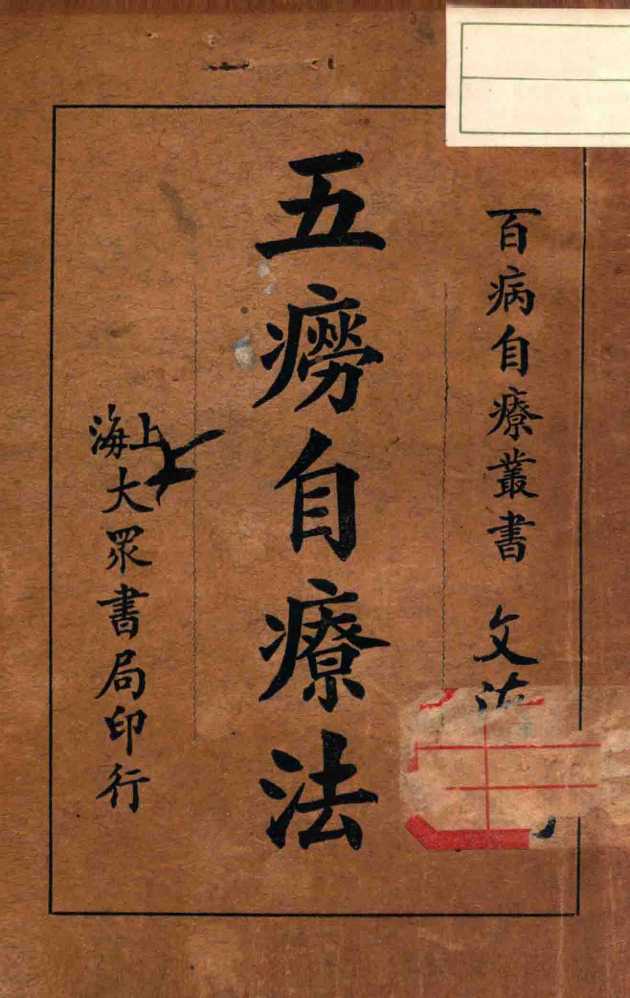 百病自療叢書　文
五癆自療法
上海大眾書局印行